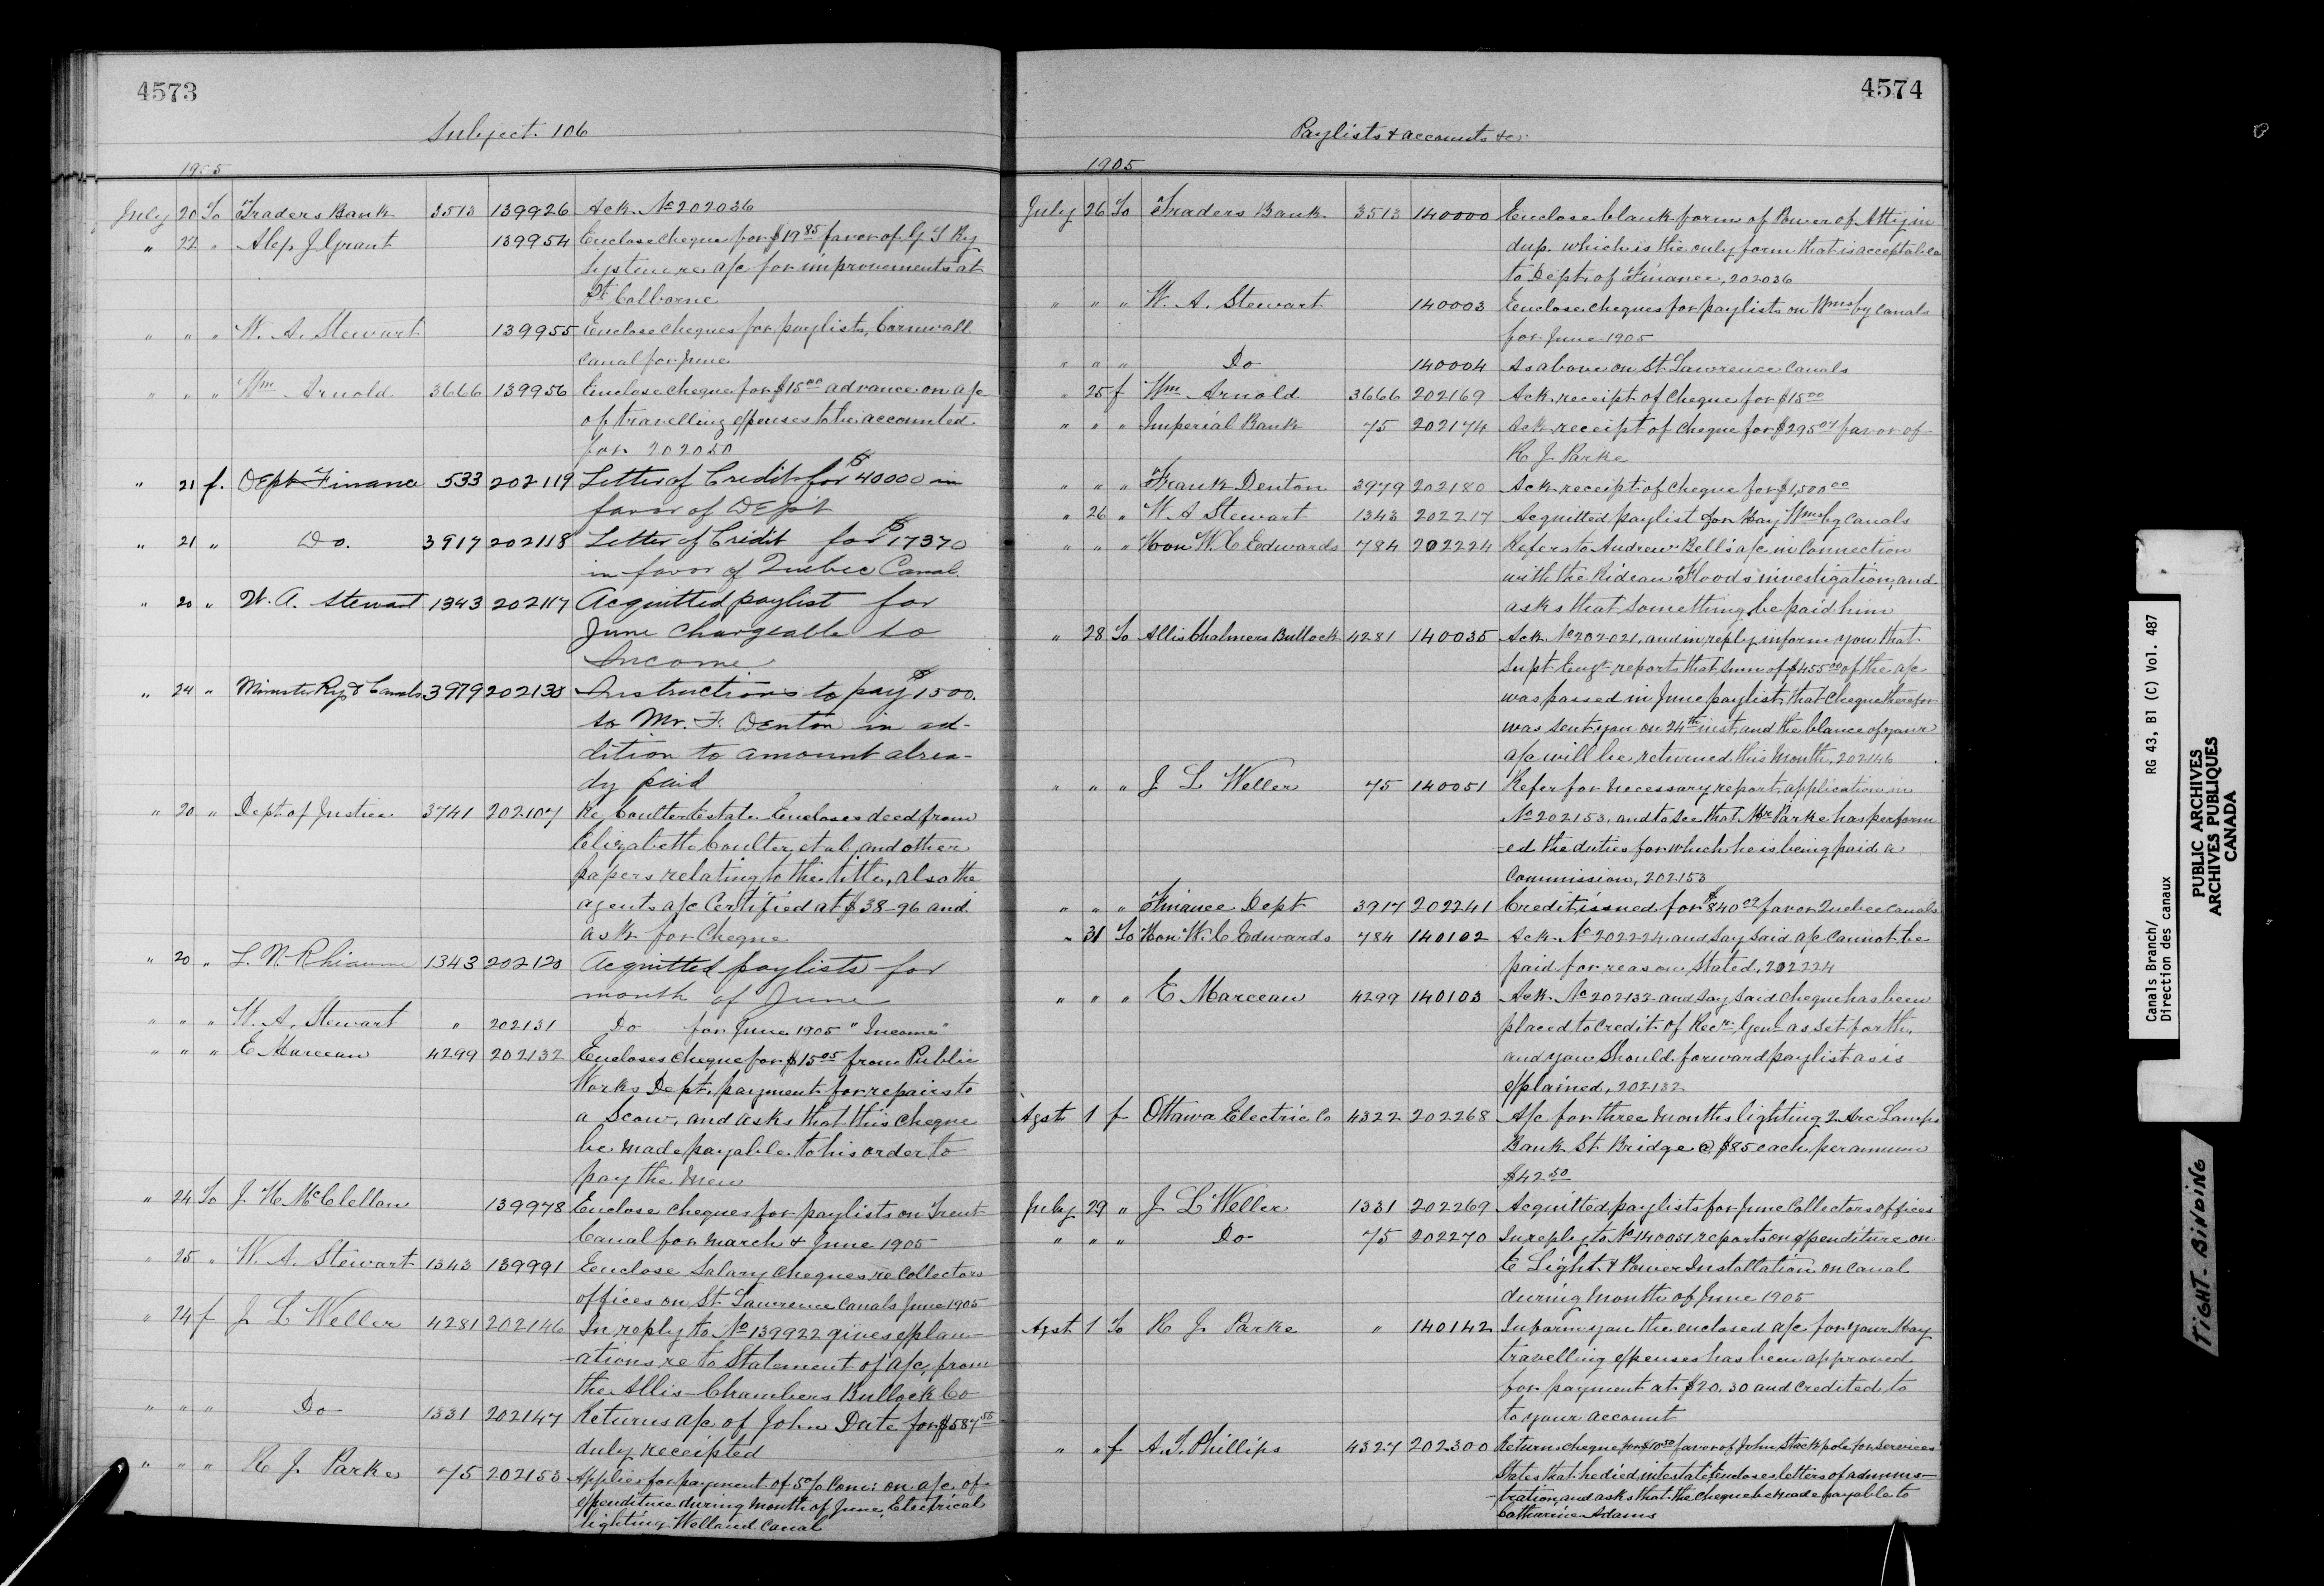 4573
Subject. 106
1905
July 20 To Traders Bank 3513 139926 Ack. No 202036
" 22 " Alex J Grant 139954 Enclose cheque for $19 85 favor of G T Ry
System re a/c for improvements at
Pt Colborne
" " " W. A. Stewart 139955 Enclose cheques for paylists, Cornwall
Canal for June
" " " Wm Arnold 3666 139956 Enclose cheque for $15 00 advance on a/c
of travelling expenses to be accounted
for 202050
" 21 f. Dept Finance 533 202119 Letter of Credit for $40000 in
favor of Dept
" 21 " Do. 3917 202118 Letter of Credit for $17370
in favor of Quebec Canal.
" 20 " W. A. Stewart 1343 202117 Acquitted paylist for
June chargeable to
Income
" 24 " Minister Ry & Canals 3979 202138 Instructions to pay $1500.
to Mr. F. Denton in ad-
dition to amount alrea-
dy paid
" 20 " Dept of Justice 3741 202107 Re Coulter Estate Encloses deed from
Elizabeth Coulter, et al, and other
papers relating to the title, also the
agents a/c Certified at $38-96 and
ask for cheque
" 20 " L. N. Rhéaume 1343 202120 Acquitted paylists for
month of June
" " " W. A. Stewart " 202131 Do for June 1905 "Income"
" " " E Marceau 4299 202132 Encloses cheque for $15 05 from Public
Works Dept. payment for repairs to
a Scow, and asks that this cheque
be made payable to his order to
pay the men
" 24 To J. H. McClellan 139978 Enclose cheques for paylists on Trent
Canal for March & June 1905
" 25 " W. A. Stewart 1343 139991 Enclose Salary cheques re Collectors
offices on St. Lawrence Canals June 1905
" 24 f J L Weller 4281 202146 In reply to No 139922 gives explan-
-ations re to Statement of a/c, from
the Allis-Chambers Bullock Co
" " " Do 1331 202147 Returns a/c of John Date for $587 55
duly receipted
" " " R J Parke 75 202153 Applies for payment of 5% Com: on a/c of
expenditure during month of June, Electrical
lighting Welland Canal
4574
Paylists & accounts &c.
1905
July 26 To Traders Bank 3513 140000 Enclose blank form of Power of Atty in
dup. which is the only form that is acceptable
to Dept. of Finance, 202036
" " " W. A. Stewart 140003 Enclose cheques for paylists on Wmsbg Canals
for June 1905
" " " Do 140004 As above on St. Lawrence Canals
" 25 f Wm Arnold 3666 202169 Ack. receipt of cheque for $15 00
" " " Imperial Bank 75 202174 Ack receipt of cheque for $295 07 favor of
R J Parke
" " " Frank Denton 3979 202180 Ack receipt of cheque for $1,500 00
" 26 " W. A Stewart 1343 202217 Acquitted paylist for May Wmsbg Canals
" " " Hon W. C Edwards 784 202224 Refers to Andrew Bell's a/c in connection
with the Rideau Floods investigation, and
asks that something be paid him
" 28 To Allis Chalmers Bullock 4281 140035 Ack. No 202021, and in reply inform you that
Supt. Engr reports that Sum of $455 00 of the a/c
was passed in June paylist, that cheque therefor
was sent you on 24th inst, and the blance of your
a/c will be returned this month, 202146
" " " J L Weller 75 140051 Refer for necessary report, application in
No 202153, and to see that Mr Parke has perform
-ed the duties for which he is being paid a
Commission, 202153
" " " Finance Dept 3917 202241 Credit issued for $840 09 favor Quebec Canals
" 31 To Hon. W. C Edwards 784 140102 Ack. No 202224 and say said a/c cannot be
paid for reason stated, 202224
" " " E Marceau 4299 140103 Ack. No 202132 and say said cheque has been
placed to credit of Recr. Genl as set forth,
and you should forward paylist as is
explained, 202132
Agst 1 f Ottawa Electric Co 4322 202268 A/c for three months lighting 2 Arc Lamps
Bank St Bridge @ $85 each per annum
$42 50
July 29 " J L Weller 1331 202269 Acquitted paylists for June Collectors offices
" " " Do 75 202270 In reply to No 140051, reports on expenditure on
E Light & Power Installation on Canal
during month of June 1905
Agst 1 To R J Parke " 140142 Inform you the enclosed a/c for your May
travelling expenses has been approved
for payment at $20.30 and credited to
to your account
" " f A. T. Phillips 4327 202300 Returns cheque for $10 50 favor of John Stackpole for services
States that he died intestate, Encloses letters of adminis-
-tration, and asks that the cheque be made payable to
Catharine Adams
Canals Branch/
Direction des canaux
RG 43, B1 (C) Vol. 487
PUBLIC ARCHIVES
ARCHIVES PUBLIQUES
CANADA
TIGHT-BINDING